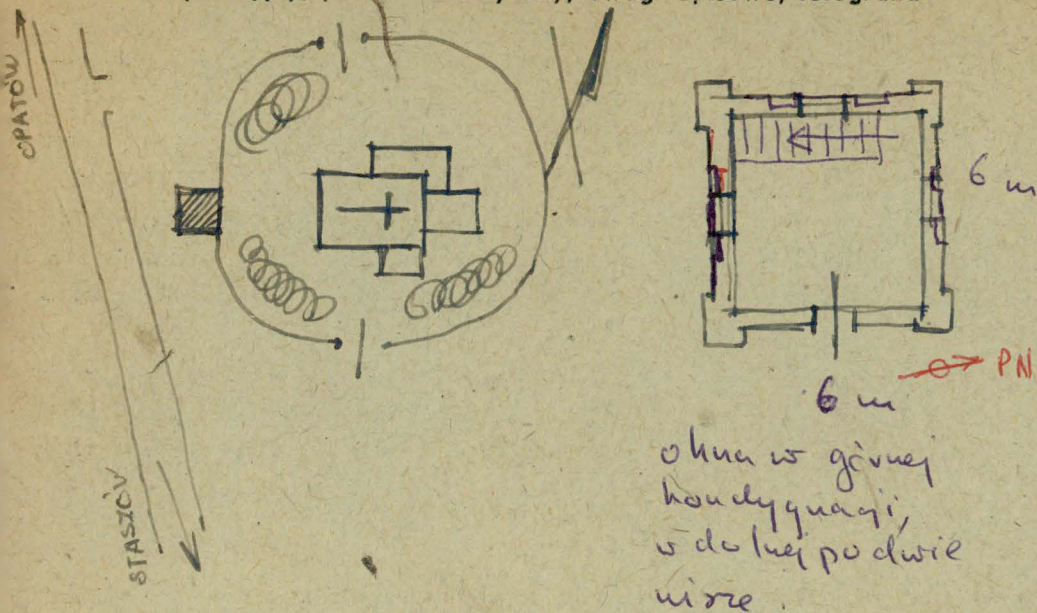 OPATÓW
STASZÓW
6 m
PN
6 m
okna w górnej
kondygnacji,
w dolnej po dwie
nisze.